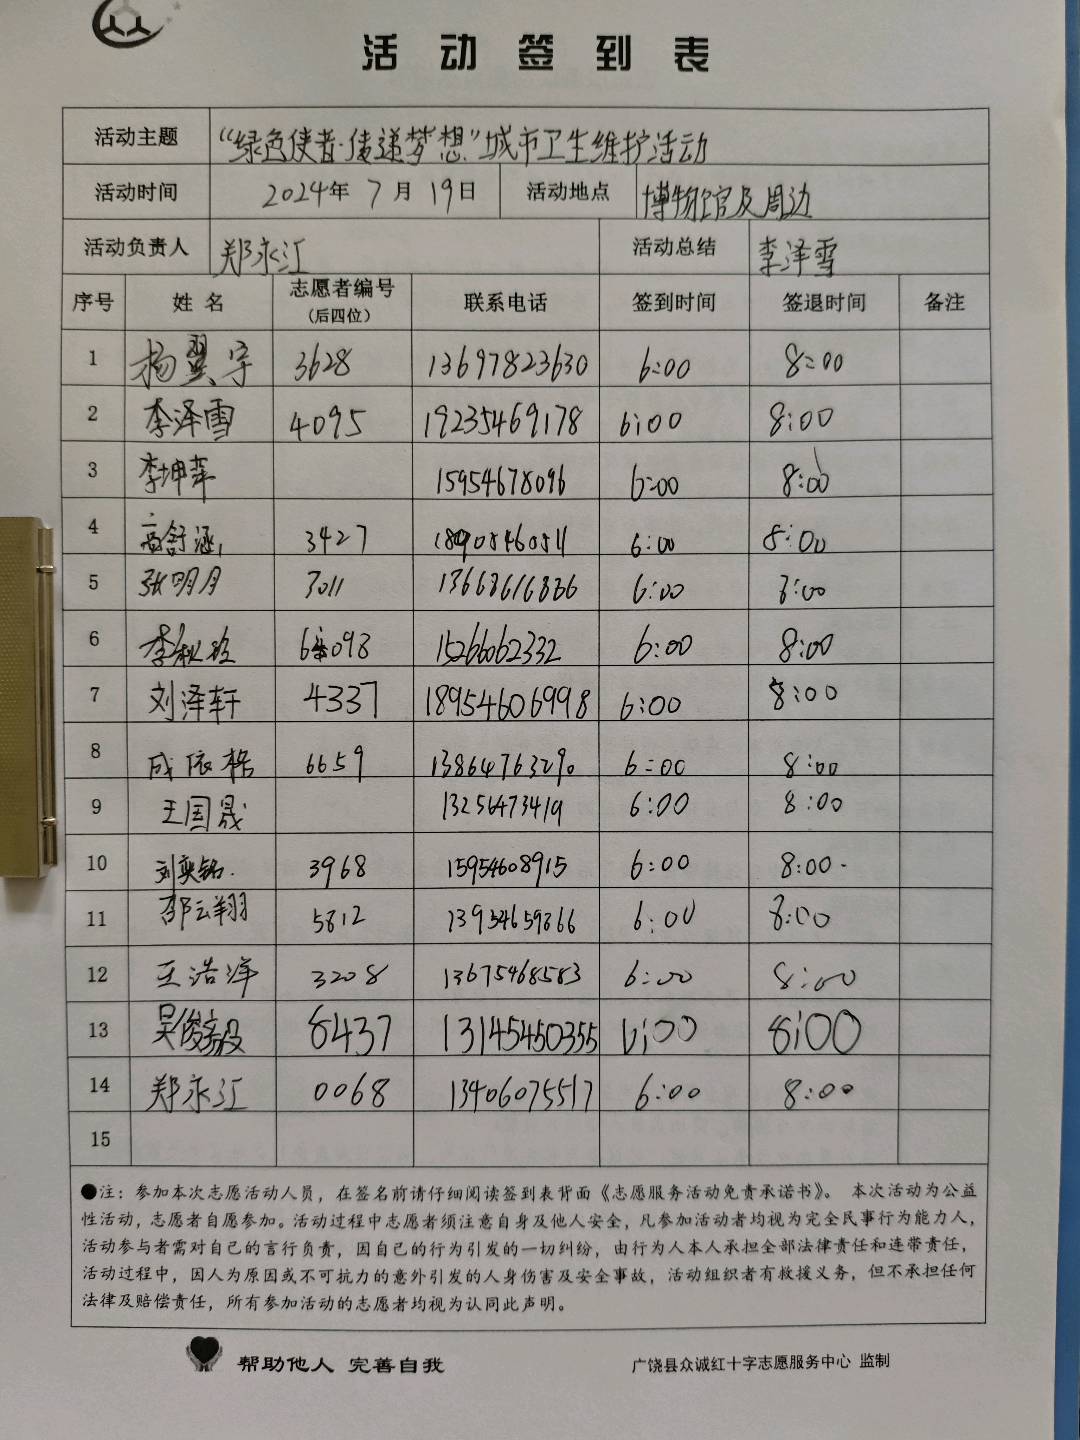 活动签到表
活动主题 “绿色使者·传递梦想”城市卫生维护活动
活动时间 2024年 7月 19日 活动地点 博物馆及周边
活动负责人 郑永江 活动总结 李泽雪
序号 姓名 志愿者编号(后四位) 联系电话 签到时间 签退时间 备注
1 杨翼宇 3628 13697823630 6:00 8:00
2 李泽雪 4095 19235469178 6:00 8:00
3 李坤苹 15954678096 6:00 8:00
4 高舒涵 3427 6:00 8:00
5 张明月 7011 13668616866 6:00 8:00
6 李秋玲 6093 15266062332 6:00 8:00
7 刘泽轩 4337 18954606998 6:00 8:00
8 成依格 6659 13864763290 6:00 8:00
9 王国晟 13256473419 6:00 8:00
10 刘奕铭 3968 15954608915 6:00 8:00
11 邵云翔 5812 13954659866 6:00 8:00
12 王浩洋 3208 13675468583 6:00 8:00
13 吴俊毅 8437 13145450355 6:00 8:00
14 郑永江 0068 13406075517 6:00 8:00
15
●注：参加本次志愿活动人员，在签名前请仔细阅读签到表背面《志愿服务活动免责承诺书》。 本次活动为公益
性活动，志愿者自愿参加。活动过程中志愿者须注意自身及他人安全，凡参加活动者均视为完全民事行为能力人，
活动参与者需对自己的言行负责，因自己的行为引发的一切纠纷，由行为人本人承担全部法律责任和连带责任，
活动过程中，因人为原因或不可抗力的意外引发的人身伤害及安全事故，活动组织者有救援义务，但不承担任何
法律及赔偿责任，所有参加活动的志愿者均视为认同此声明。
帮助他人 完善自我 广饶县众诚红十字志愿服务中心 监制